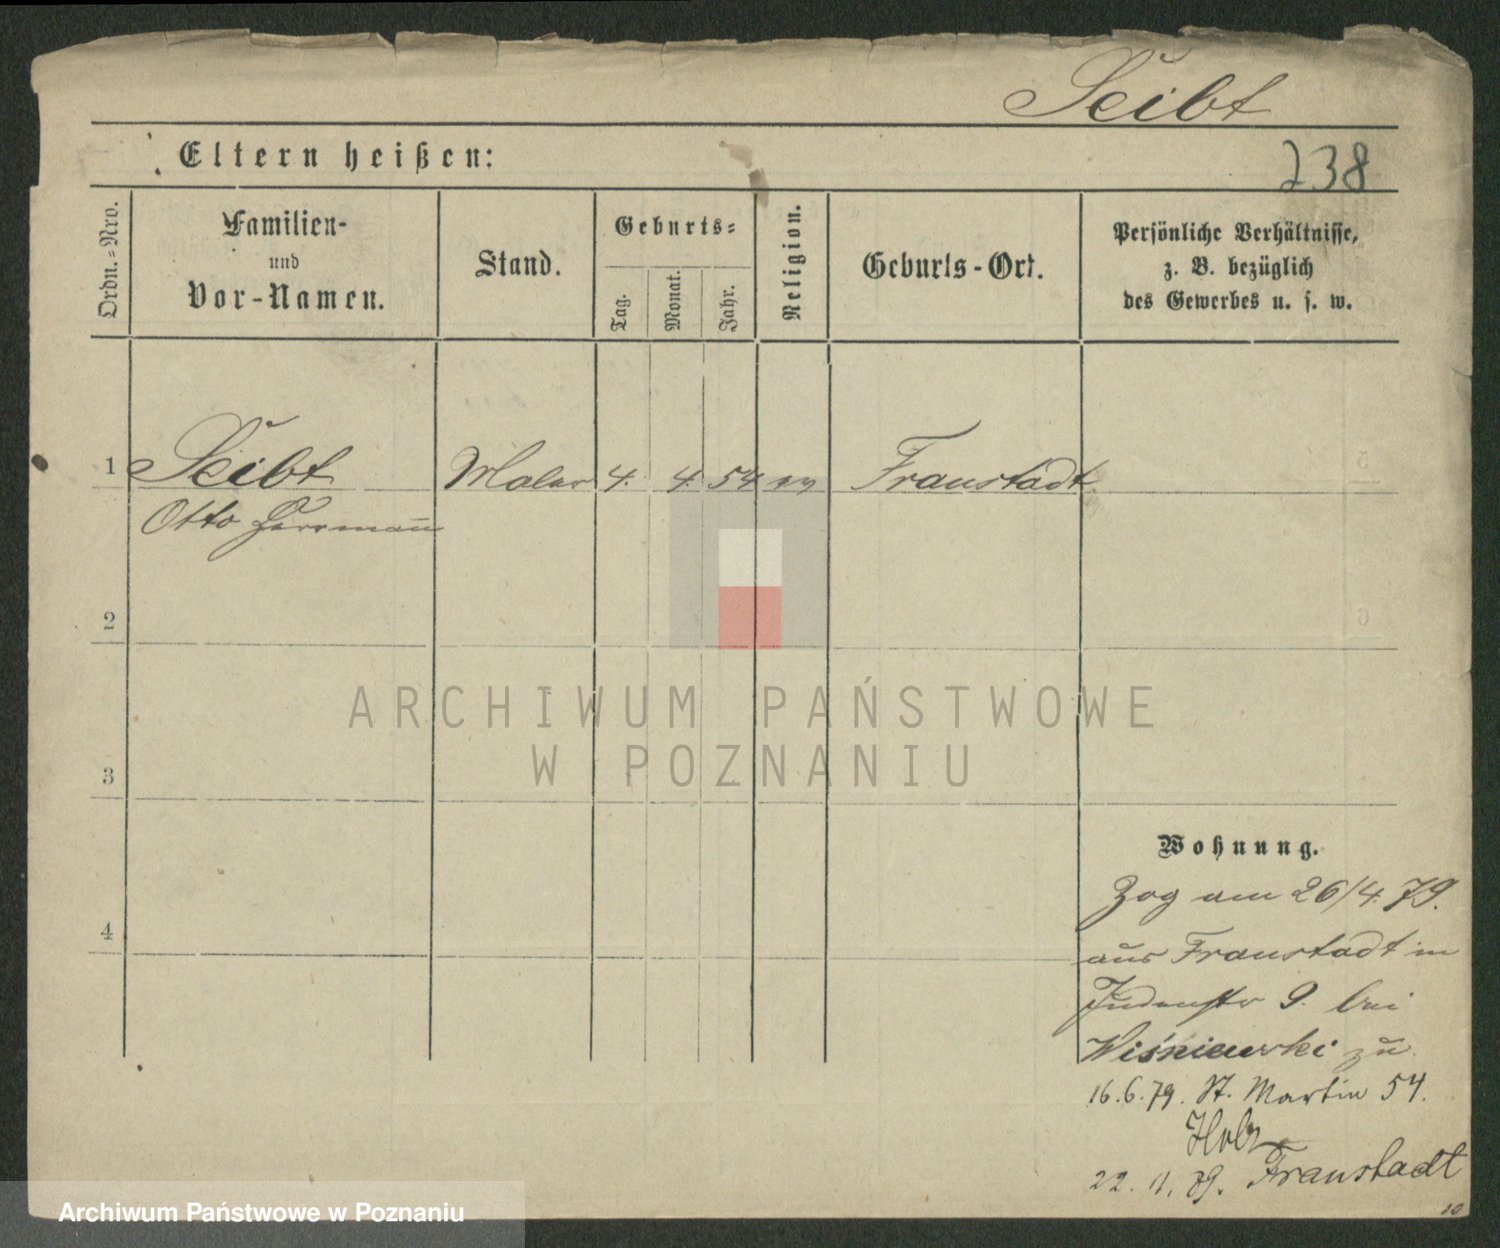 Seibt
Eltern heißen:
238
Ordn.-Nro.
Familien-
und
Vor-Namen.
Stand.
Geburts-
Tag.
Monat.
Jahr.
Religion.
Geburts-Ort.
Persönliche Verhältnisse,
z. B. bezüglich
des Gewerbes u. s. w.
1 Seibt Maler 4. 4. 54 ev Fraustadt
Otto Herrmann
2
3
4
ARCHIWUM PAŃSTWOWE
W POZNANIU
Wohnung.
Zog am 26/4. 79.
aus Fraustadt in
Judenstr 9. bei
Wiśniewski zu
16.6.79. St. Martin 54.
Holz
22. 11. 79. Fraustadt
10
Archiwum Państwowe w Poznaniu